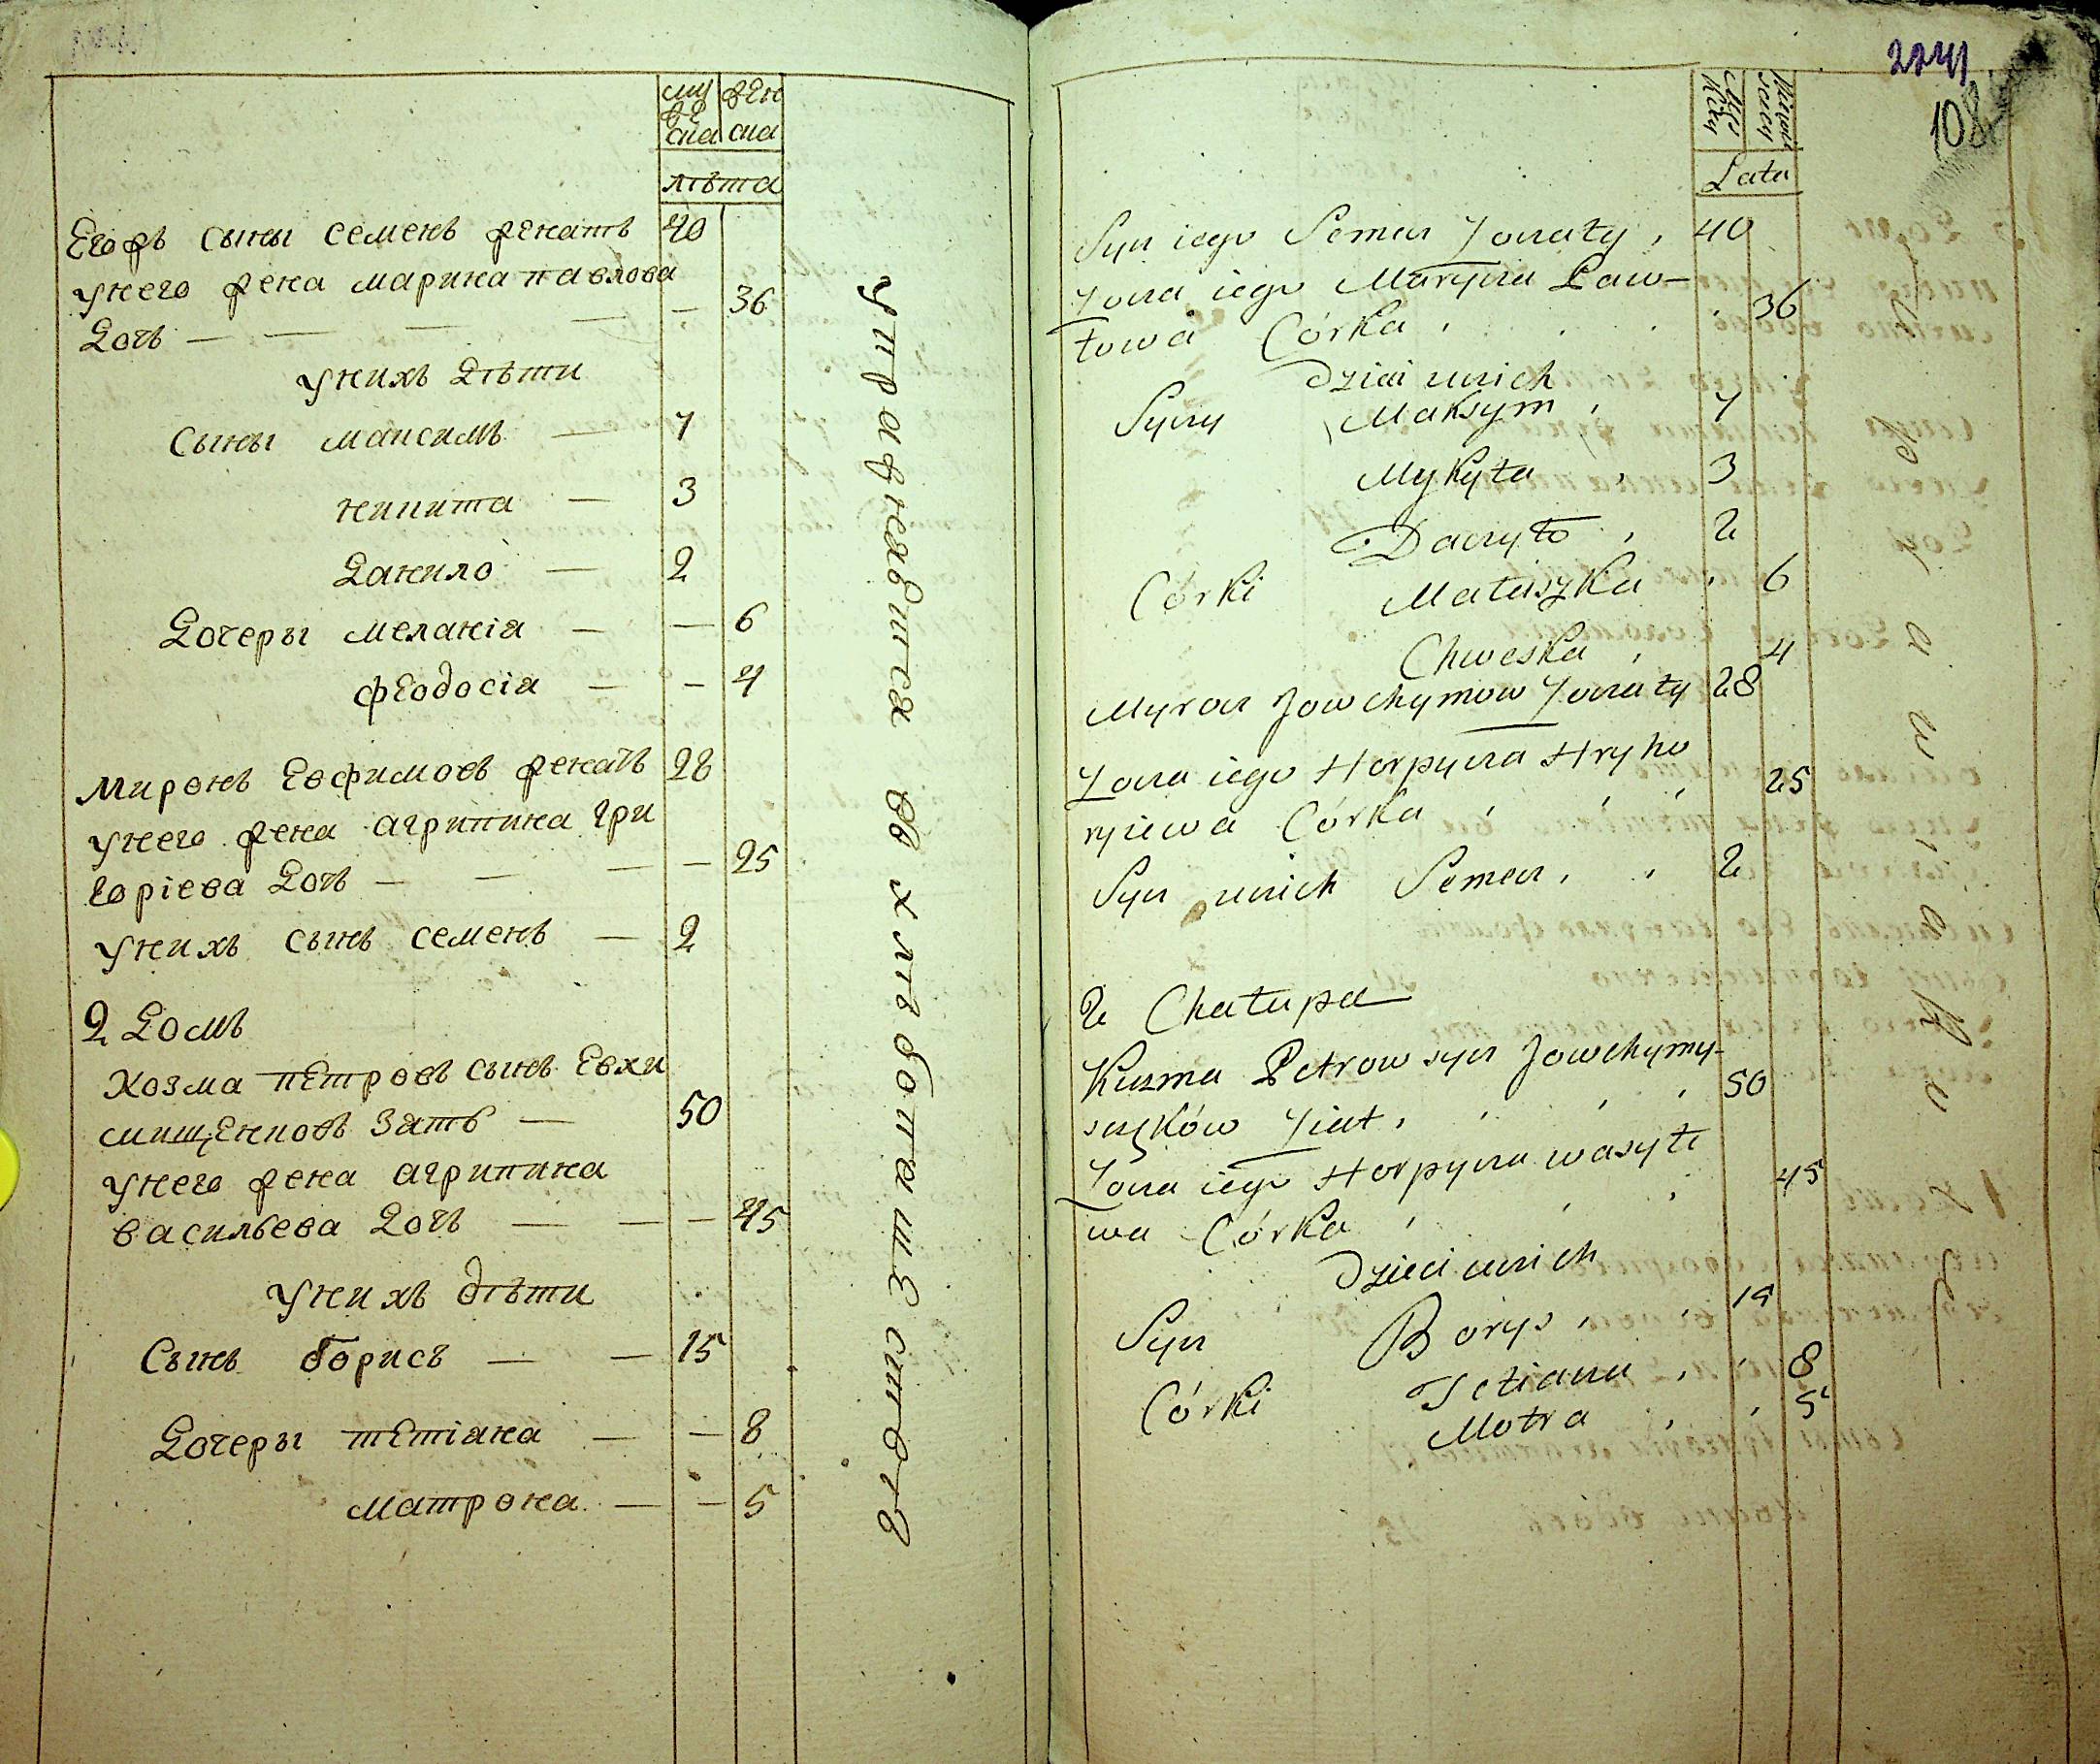 му жен
же
ска ска
лѣта
Егоръ сыны семенъ женатъ 40
унего жена марина павлова
дочь — — — — — 36
унихъ дѣти
сыны максимъ — 7
никита — 3
данило — 2
дочеры меланія — — 6
феодосія — — 4
миронъ Евфимовъ женатъ 28
унего жена агрипина гри
горіева дочь — — — — 25
унихъ сынъ семенъ — 2
2 домъ
козма пЕтровъ сынъ Евхи
мищЕнковъ зять — 50
унего жена агрипина
васильева дочь — — — 45
унихъ дѣти
Сынъ борисъ — — 15
дочеры тЕтіана — — 8
матрона — — 5
упражнявшися въ хлѣбопашэствѣ
2241
108
Męz
kiey
Lata
Syn iego Semen Żonaty 40
Żona iego Maryna Paw-
łowa Córka 36
Dzieci unich
Syny Maksym 7
Mykyta 3
Danyło 2
Córki Małaszka 6
Chweska 4
Myron Jowchymow Żonaty 28
Żona iego Horpyna Hryho
ryiewa Córka 25
Syn unich Semen 2
2 Chałupa
Kuzma Petrow syn Jowchymy-
szyków Ziat 50
Żona iego Horpyna wasyle
wa Córka 45
Dzieci unich
Syn Borys 15
Córki Tetiana 8
Motra 5